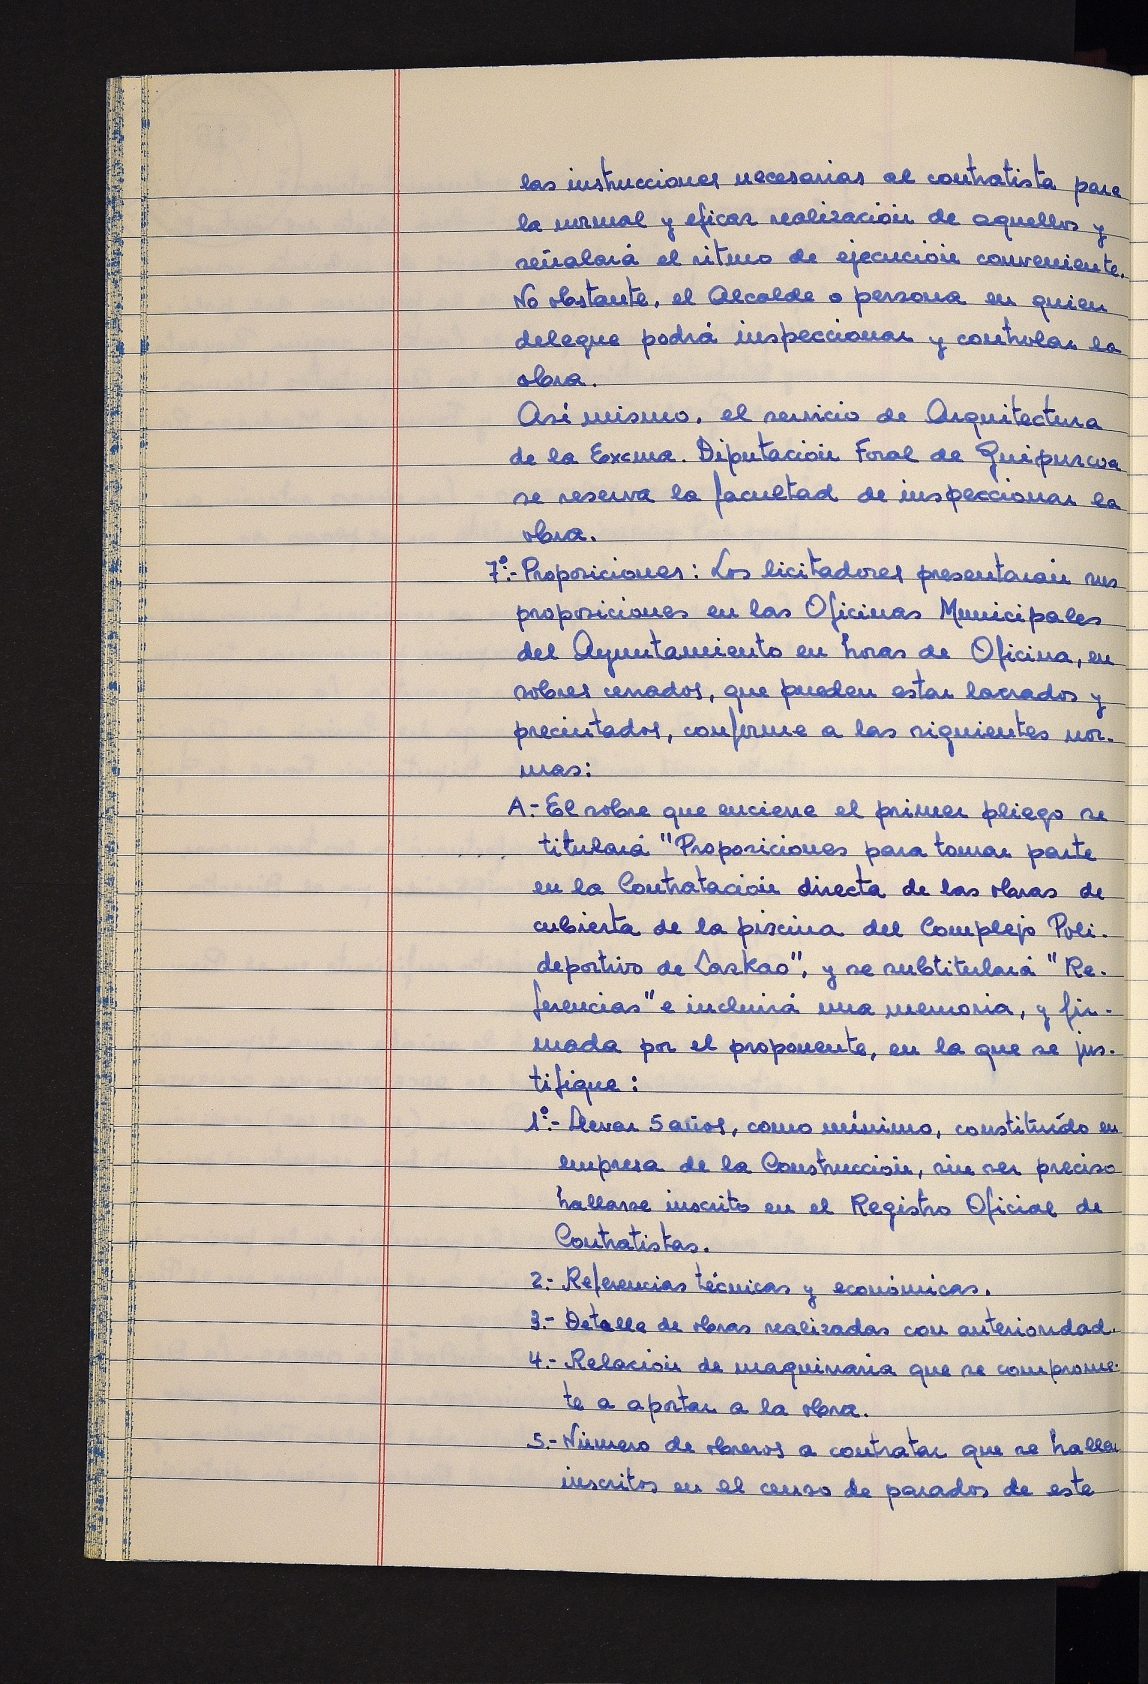 las instrucciones necesarias al contratista para
la normal y eficaz realización de aquellos y
señalará el ritmo de ejecución conveniente.
No obstante, el Alcalde o persona en quien
delegue podrá inspeccionar y controlar la
obra.
Así mismo, el servicio de Arquitectura
de la Excma. Diputación Foral de Guipuzcoa
se reserva la facultad de inspeccionar la
obra.
7º.- Proposiciones: Los licitadores presentarán sus
proposiciones en las Oficinas Municipales
del Ayuntamiento en horas de Oficina, en
sobres cerrados, que pueden estar lacrados y
precintados, conforme a las siguientes nor-
mas:
A.- El sobre que encierre el primer pliego se
titulará "Proposiciones para tomar parte
en la Contratación directa de las obras de
cubierta de la piscina del Complejo Poli-
deportivo de Lazkao", y se subtitulará "Re-
ferencias" e incluirá una memoria, y fir-
mada por el proponente, en la que se jus-
tifique:
1º.- Llevar 5 años, como mínimo, constituído en
empresa de la Construcción, sin ser preciso
hallarse inscrito en el Registro Oficial de
Contratistas.
2.- Referencias técnicas y económicas.
3.- Detalle de obras realizadas con anterioridad.
4.- Relación de maquinaria que se comprome-
te a aportar a la obra.
5.- Número de obreros a contratar que se hallen
inscritos en el censo de parados de este